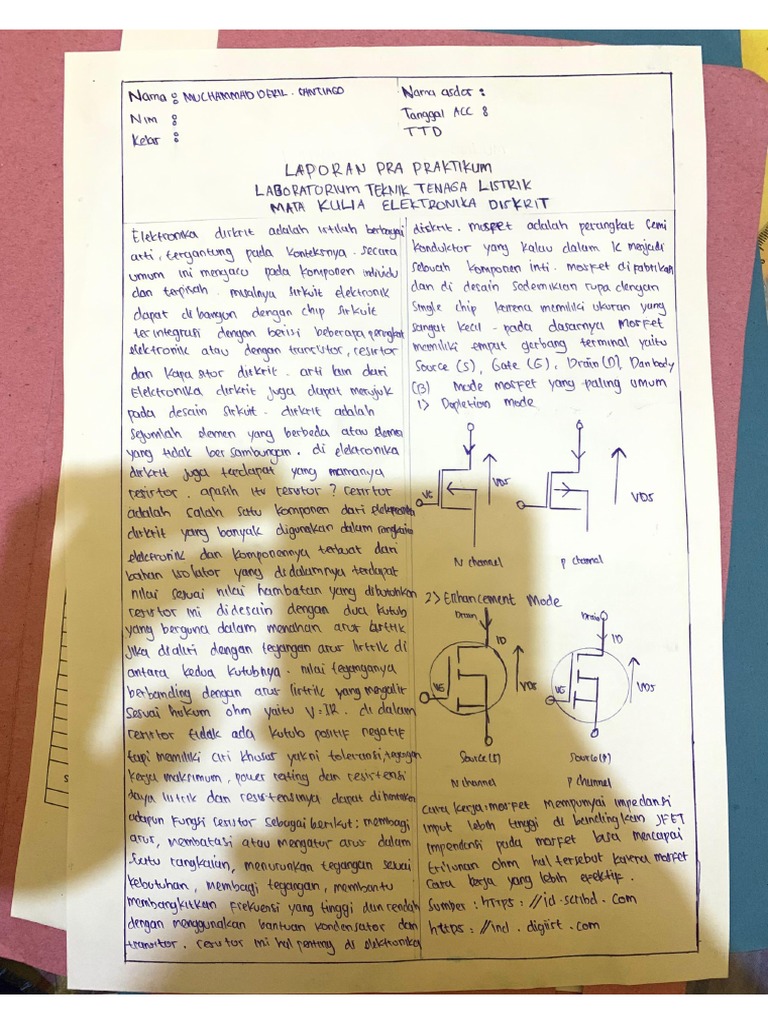 Nama : MUCHAMMAD DERIL . SANTIAGO
Nim :
Kelas :
Nama asdos :
Tanggal ACC :
TTD
LAPORAN PRA PRAKTIKUM
LABORATORIUM TEKNIK TENAGA LISTRIK
MATA KULIA ELEKTRONIKA DISKRIT
Elektronika diskrit adalah istilah berbagai
arti, tergantung pada konteksnya . secara
umum ini mengacu pada komponen individu
dan terpisah . misalnya sirkuit elektronik
dapat di bangun dengan chip sirkuit
terintegrasi dengan berisi beberapa perangkat
elektronik atau dengan transistor, resistor
dan kapasitor diskrit . arti lain dari
Elektronika diskrit juga dapat merujuk
pada desain sirkuit . diskrit adalah
sejumlah elemen yang berbeda atau elemen
yang tidak bersambungan . di elektronika
diskrit juga terdapat yang mamanya
resistor . apasih itu resistor ? resistor
adalah salah satu komponen dari elektronika
diskrit yang banyak digunakan dalam rangkaian
elektronik dan komponennya terbuat dari
bahan isolator yang didalamnya terdapat
nilai sesuai nilai hambatan yang dibutuhkan
resistor ini didesain dengan dua kutub
yang berguna dalam menahan arus listrik
jika dialiri dengan tegangan arus listrik di
antara kedua kutubnya . nilai tegangannya
berbanding dengan arus listrik yang mengalir
sesuai hukum ohm yaitu V=IR . di dalam
resistor tidak ada kutub positif negatif
tapi memiliki ciri khusus yakni toleransi, tegangan
kerja maksimum, power rating dan resistensi
daya listrik dan resistensinya dapat di
adapun fungsi resistor sebagai berikut : membagi
arus, membatasi atau mengatur arus dalam
satu rangkaian, menurunkan tegangan sesuai
kebutuhan, membagi tegangan, membantu
membangkitkan frekuensi yang tinggi dan rendah
dengan menggunakan bantuan kondensator dan
transitor . resistor ini hal penting di elektronika
diskrit . mospet adalah perangkat semi
konduktor yang kalau dalam Ic menjadi
sebuah komponen inti . mosfet di fabrikan
dan di desain sedemikian rupa dengan
single chip karena memiliki ukuran yang
sangat kecil - pada dasarnya mosfet
memiliki empat gerbang terminal yaitu
Source (S), Gate (G), Drain (D), Dan body
(B) mode mosfet yang paling umum
1) Depletion mode
VG
VDS
VDS
N channel
P channel
2) Enhancement Mode
Drain
ID
VG
VDS
Drain
ID
VG
VDS
Source (S)
Source (P)
N channel
P channel
Cara kerja : mosfet mempunyai impedansi
input lebih tinggi di bandingkan JFET
impendansi pada mosfet bisa mencapai
triliunan ohm hal tersebut karena mosfet
cara kerja yang lebih efektif .
Sumber : https : //id . scribd . com
https : //ind . digiist . com